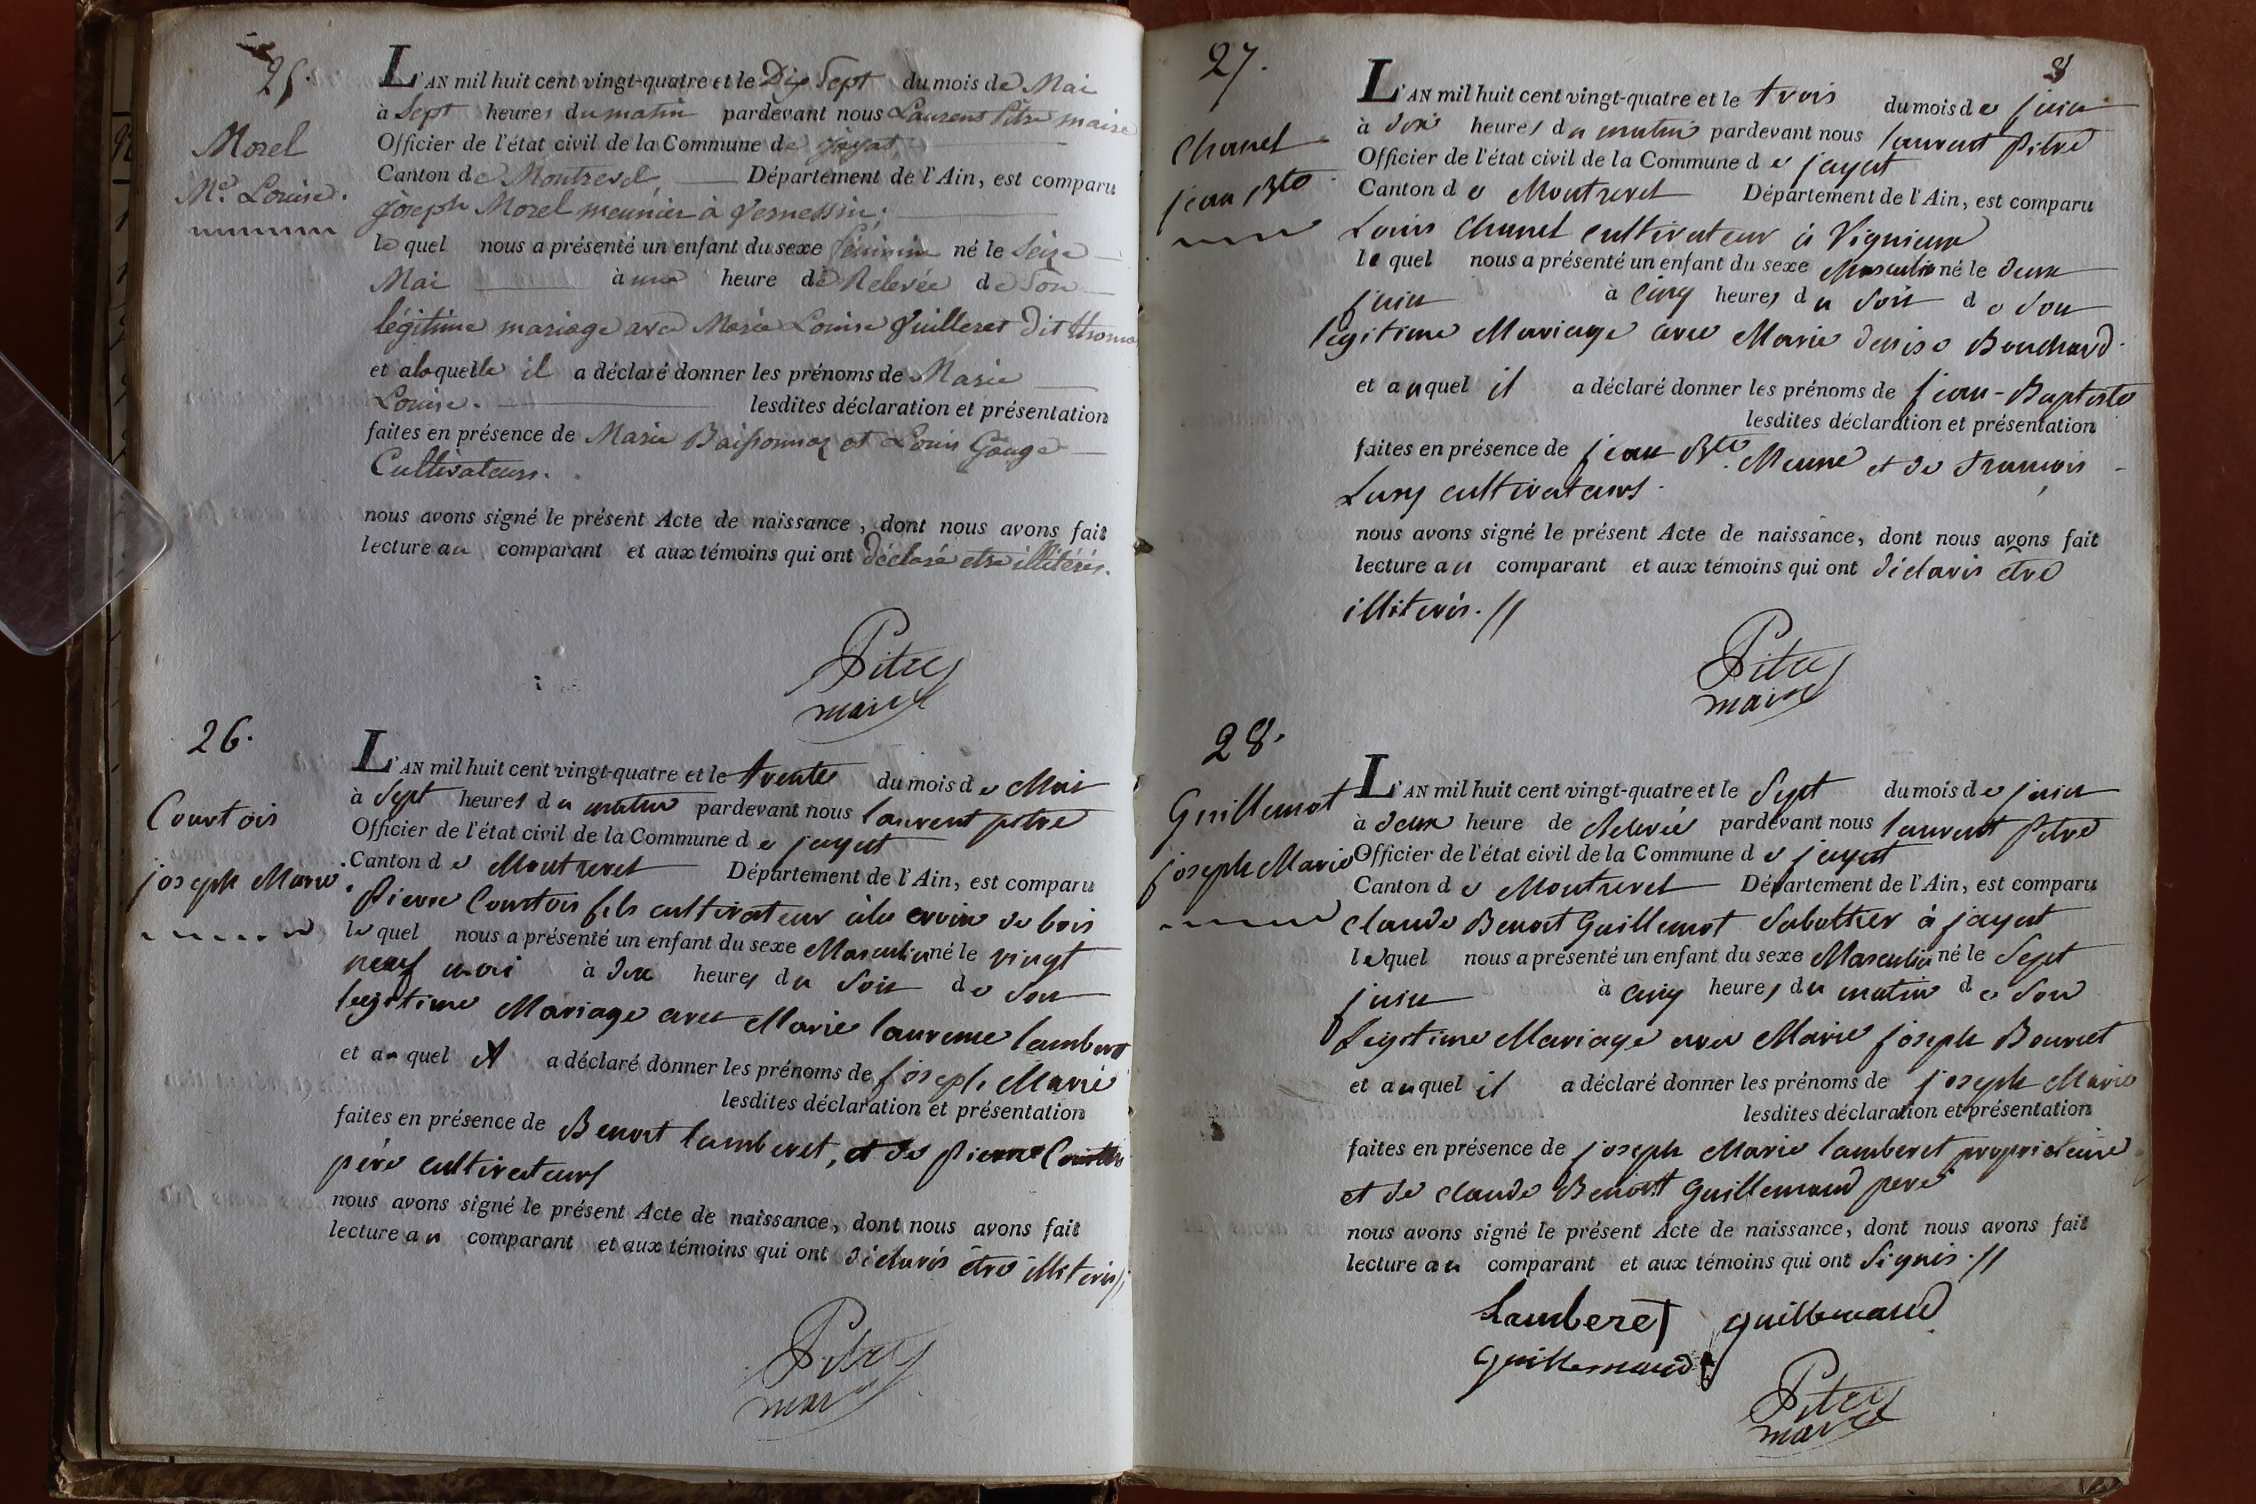 25.
Morel
Mie Louise.
L'AN mil huit cent vingt-quatre et le Dix Sept du mois de Mai
à Sept heures du matin pardevant nous Laurent Pitre maire
Officier de l'état civil de la Commune de Jayat,
Canton de Montrevel, Département de l'Ain, est comparu
Joseph Morel meunier à
lequel nous a présenté un enfant du sexe féminin né le Seize
Mai à une heure de Relevée de Son
légitime mariage avec Marie Louise Guilleret dit thomas
et a laquelle il a déclaré donner les prénoms de Marie
Louise. lesdites déclaration et présentation
faites en présence de Marie et Louis Gouge
Cultivateurs.
nous avons signé le présent Acte de naissance, dont nous avons fait
lecture au comparant et aux témoins qui ont déclaré etre illitérés.
Pitre
maire
26.
Courtois
joseph Marie.
L'AN mil huit cent vingt-quatre et le trente du mois de Mai
à Sept heures du matin pardevant nous laurent pitre
Officier de l'état civil de la Commune de jayat
Canton de Montrevel Département de l'Ain, est comparu
Pierre Courtois fils cultivateur à la croix de bois
lequel nous a présenté un enfant du sexe Masculin né le vingt
neuf mai à dix heures du Soir de Son
legitime Mariage avec Marie laurence lamberet
et auquel il a déclaré donner les prénoms de joseph Marie
lesdites déclaration et présentation
faites en présence de Benoit lamberet, et de pierre Courtois
père cultivateurs
nous avons signé le présent Acte de naissance, dont nous avons fait
lecture au comparant et aux témoins qui ont déclarés être illiterés //
Pitre
maire
27.
8
Chanel
jean Bte
L'AN mil huit cent vingt-quatre et le trois du mois de juin
à dix heures du matin pardevant nous laurent Pitre
Officier de l'état civil de la Commune de jayat
Canton de Montrevel Département de l'Ain, est comparu
Louis Chanel cultivateur à Vignieux
lequel nous a présenté un enfant du sexe Masculin né le deux
juin à cinq heures du Soir de Son
legitime Mariage avec Marie denise Bouchard.
et auquel il a déclaré donner les prénoms de jean-Baptiste
lesdites déclaration et présentation
faites en présence de jean Bte. et de François
cultivateurs.
nous avons signé le présent Acte de naissance, dont nous avons fait
lecture au comparant et aux témoins qui ont déclarés être
illiterés. //
Pitre
maire
28.
Guillemot
joseph Marie
L'AN mil huit cent vingt-quatre et le Sept du mois de juin
à deux heure de Relevée pardevant nous laurent Pitre
Officier de l'état civil de la Commune de jayat
Canton de Montrevel Département de l'Ain, est comparu
claude Benoit Guillemot Sabottier à jayat
lequel nous a présenté un enfant du sexe Masculin né le Sept
juin à cinq heures du matin de Son
Legitime Mariage avec Marie joseph Bourcet
et auquel il a déclaré donner les prénoms de joseph Marie
lesdites déclaration et présentation
faites en présence de joseph Marie lamberet proprietaire
et de claude Benoit Guillemaud pere
nous avons signé le présent Acte de naissance, dont nous avons fait
lecture au comparant et aux témoins qui ont Signés. //
Lamberet guillemaud
guillemaud
Pitre
maire